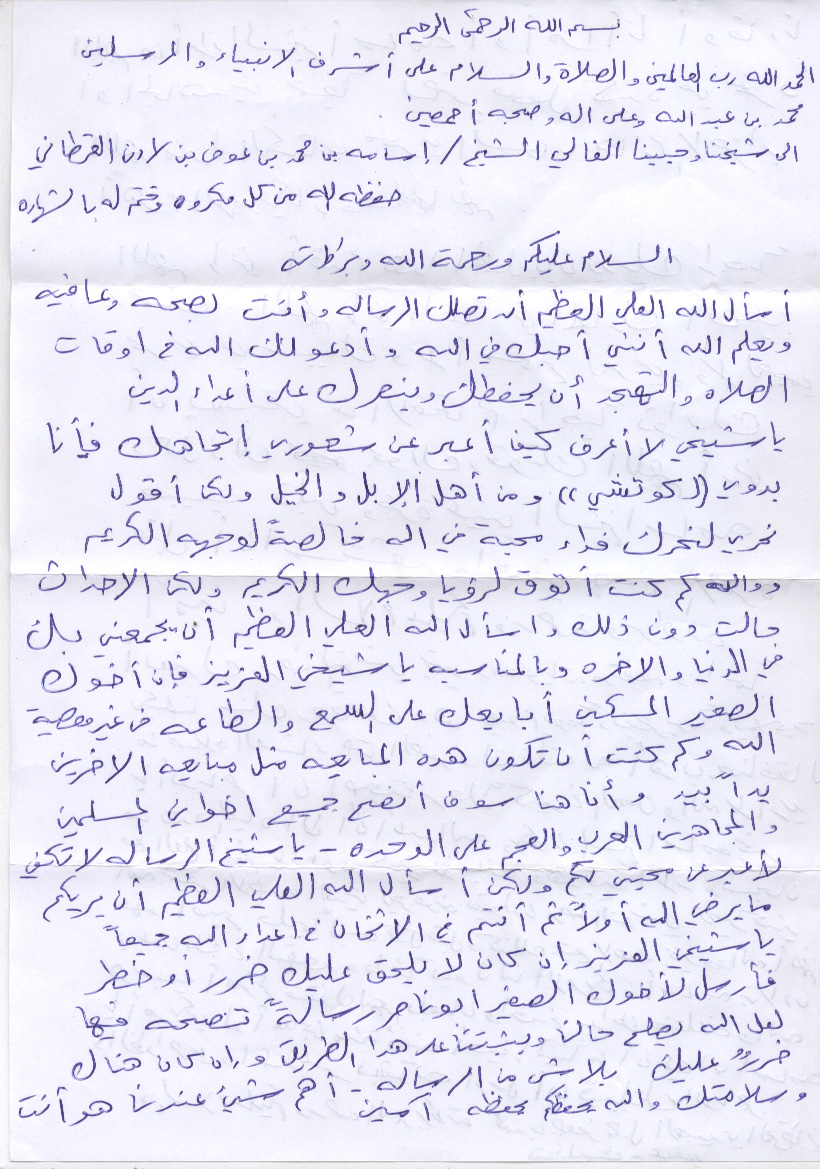 بسم الله الرحمن الرحيم
الحمد لله رب العالمين والصلاة والسلام على أشرف الانبياء والمرسلين
محمد بن عبد الله وعلى اله وصحبه أجمعين
الى شيخنا وحبيبنا الغالي الشيخ / إسامه بن محمد بن عوض بن لادن القحطاني
حفظه الله من كل مكروه وختم له بالشهاده
السلام عليكم ورحمة الله وبركاته
أسأل الله العلي العظيم أن تصلك الرساله وأنت بصحه وعافيه
ويعلم الله أنني أحبك في الله وأدعو لك الله في اوقات
الصلاه والتهجد أن يحفظك وينصرك على أعداء الدين
ياشيخي لا أعرف كيف أعبر عن شعوري إتجاهك فأنا
بدوي ((كوتشي)) ومن أهل الإبل والخيل ولكن أقول
نحري لنحرك فداء محبة في الله خالصةً لوجهه الكريم
ووالله كم كنت أتوق لرؤيا وجهك الكريم ولكن الاحداث
حالت دون ذلك واسأل الله العلي العظيم أن يجمعني بك
في الدنيا والاخره وبالمناسبه ياشيخي العزيز فإن أخوك
الصغير المسكين أبايعك على السمع والطاعه في غير معصية
الله وكم كنت أن تكون هذه المبايعه مثل مبايعه الاخرين
يداً بيد وأنا هنا سوف أنصح جميع اخواني المسلمين
والمجاهدين العرب والعجم على الوحده - ياشيخ الرساله لا تكفي
لأعبر عن محبتي لكم ولكن أسأل الله العلي العظيم أن يريكم
مايرضي الله أولاً ثم أنتم في الاثخان في اعداء الله جميعاً
ياشيخي العزيز إن كان لا يلحق عليك ضرر أو خطر
فأرسل لأخوك الصغير ابوناصر رسالةً تنصحه فيها
لعل الله يصلح حالنا ويثبتنا على هذا الطريق وإن كان هناك
ضررٌ عليك بلاش من الرساله - أهم شيئ عندنا هو أنت
وسلامتك والله يحفظكم بحفظه آمين